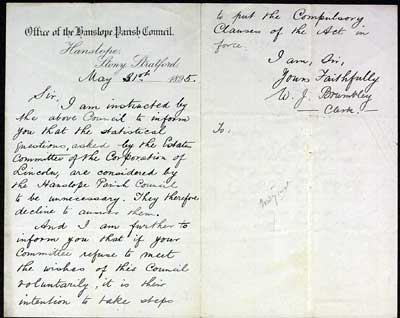 Office of the Hanslope Parish Council.
Hanslope,
Stony Stratford,
May 31st 1895.
Sir,
I am instructed by
the above Council to inform
you that the statistical
questions, asked by the Estate
Committee of the Corporation of
Lincoln, are considered by
the Hanslope Parish Council
to be unnecessary. They therefore
decline to answer them.
And I am further to
inform you that if your
Committee refuse to meet
the wishes of this Council
voluntarily, it is their
intention to take steps
to put the Compulsory
Clauses of the Act in
force.
I am, Sir,
Yours Faithfully
W. J. Brumbley
Clerk.
To,